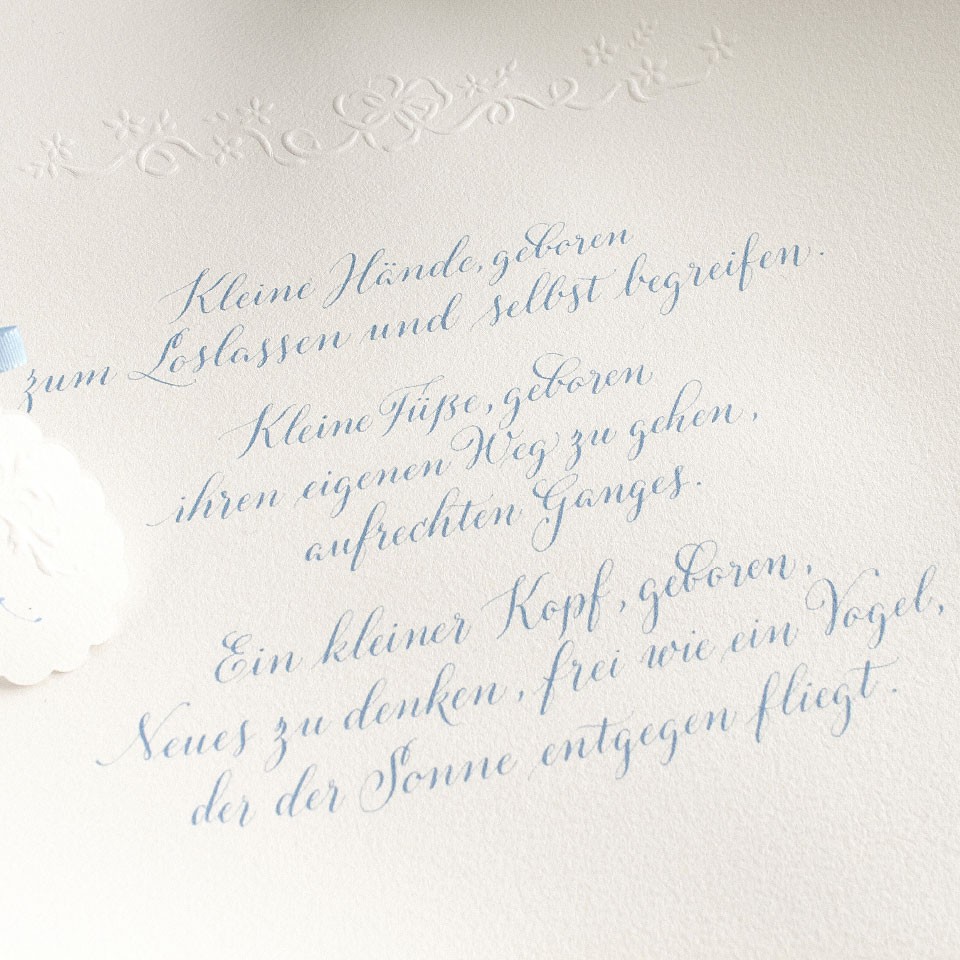 Kleine Hände, geboren
zum Loslassen und selbst begreifen.
Kleine Füße, geboren
ihren eigenen Weg zu gehen,
aufrechten Ganges.
Ein kleiner Kopf, geboren,
Neues zu denken, frei wie ein Vogel,
der der Sonne entgegen fliegt.